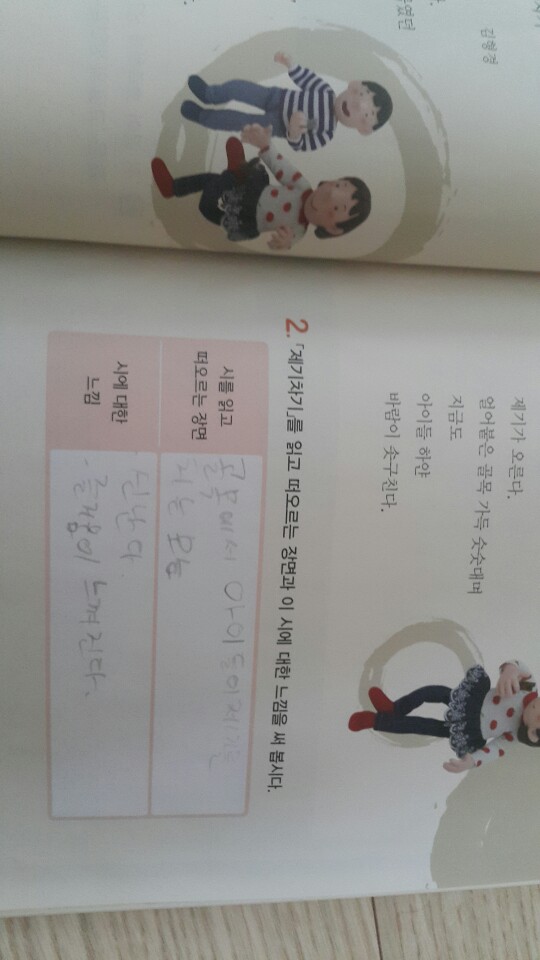 김형경
제기가 오른다.
얼어붙은 골목 가득 숫숫대며
지금도
아이들 하얀
바람이 솟구친다.
2. 「제기차기」를 읽고 떠오르는 장면과 이 시에 대한 느낌을 써 봅시다.
시를 읽고
떠오르는 장면
골목에서 아이들이 제기를
차는 모습
시에 대한
느낌
- 신난다.
- 즐거움이 느껴진다.